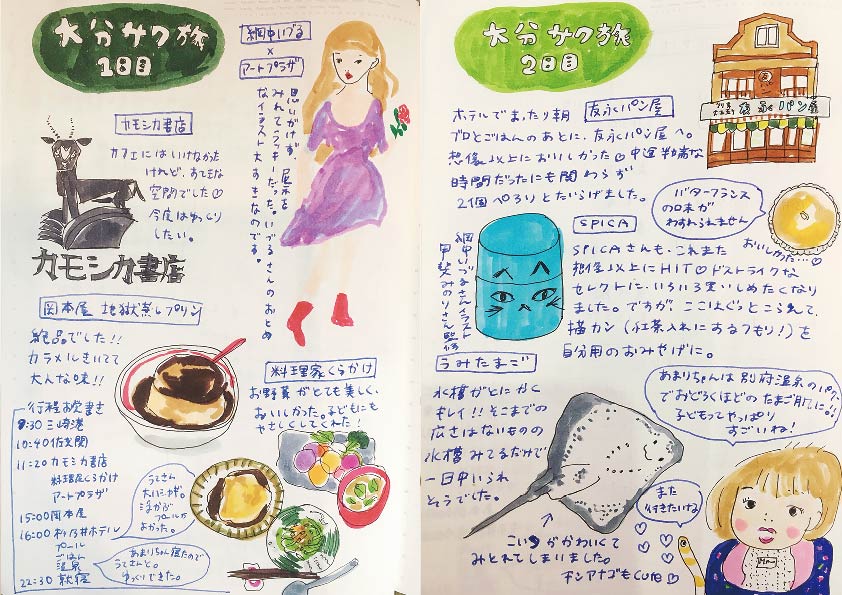 大分サク旅
1日目
カモシカ書店
カフェにはいけなかった
けれど、すてきな
空間でした♡
今度はゆっくり
したい。
カモシカ書店
網中いづる
×
アートプラザ
思いがけず、展示を
みれてラッキーだった。いづるさんのおとめ
なイラスト大すきなのです。
岡本屋 地獄蒸しプリン
絶品でした!!
カラメルきいてて
大人な味!!
料理家くらかけ
お野菜がとても美しく、
おいしかった。子どもにも
やさしくしてくれた!
行程お覚書き
8:30 三崎港
10:40 佐賀関
11:20 カモシカ書店
料理店くらかけ
アートプラザ
15:00 岡本屋
16:00 杉乃井ホテル
プール
ごはん
温泉
22:30 就寝
うてさん
プールが
よかった。
あまりちゃん寝たので
うてさんと。
ゆっくりできた。
大分サク旅
2日目
ホテルでまったり朝
友永パン屋
ブロとごはんのあとに、友永パン屋へ。
想像以上においしかった♡中途半端な
時間だったにも関わらず
2個ペろりとたいらげました。
友永パン屋
バターフランス
の味が
わすれられません
おいしかった…♡
SPICA
網中いづるさんイラスト
甲斐みのりさん監修
SPICAさんも、これまた
想像以上にHIT♡ドストライクな
セレクトに、いちいち買いしめたくなり
ました。ですが、ここはぐっとこらえて、
猫カン(紅茶入れにするつもり!)を
自分用のおみやげに。
うみたまご
水槽がとにかく
キレイ!!そこまでの
広さはないものの
水槽みてるだけで
一日中いられ
そうでした。
こいつがかわいくて
みとれてしまいました。
チンアナゴもCute♡
あまりちゃんは別府温泉のパワー
でおどろくほどのたまご肌に!!
子どもってやっぱり
すごいね!
また
行きたいね